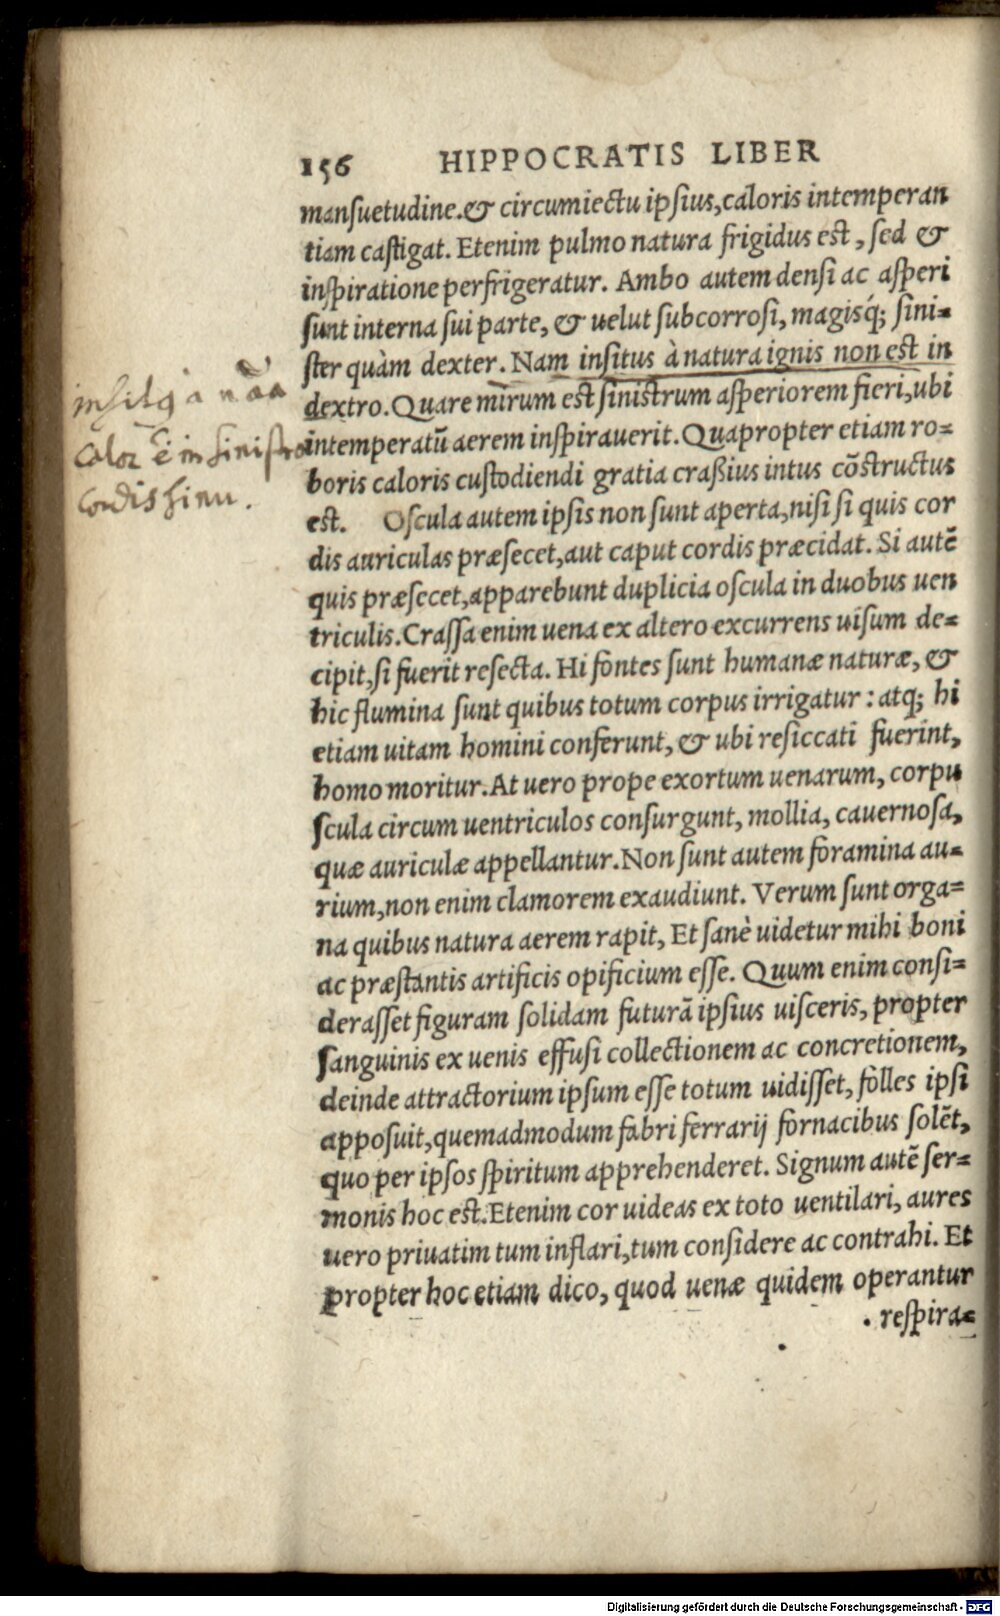 156 HIPPOCRATIS LIBER
mansuetudine.& circumiectu ipsius,caloris intemperan
tiam castigat. Etenim pulmo natura frigidus est, sed &
inspiratione perfrigeratur. Ambo autem densi ac asperi
sunt interna sui parte, & uelut subcorrosi, magisq́; sini-
ster quàm dexter. Nam insitus à natura ignis non est in
dextro. Quare mirum est sinistrum asperiorem fieri,ubi
intemperatū aerem inspirauerit. Quapropter etiam ro-
boris caloris custodiendi gratia craßius intus cōstructus
est. Oscula autem ipsis non sunt aperta,nisi si quis cor
dis auriculas præsecet,aut caput cordis præcidat. Si autē
quis præsecet,apparebunt duplicia oscula in duobus uen
triculis. Crassa enim uena ex altero excurrens uisum de-
cipit,si fuerit resecta. Hi fontes sunt humanæ naturæ, &
hic flumina sunt quibus totum corpus irrigatur : atq; hi
etiam uitam homini conferunt, & ubi resiccati fuerint,
homo moritur. At uero prope exortum uenarum, corpu
scula circum uentriculos consurgunt, mollia, cauernosa,
quæ auriculæ appellantur. Non sunt autem foramina au-
rium,non enim clamorem exaudiunt. Verum sunt orga-
na quibus natura aerem rapit, Et sanè uidetur mihi boni
ac præstantis artificis opificium esse. Quum enim consi-
derasset figuram solidam futurā ipsius uisceris, propter
sanguinis ex uenis effusi collectionem ac concretionem,
deinde attractorium ipsum esse totum uidisset, folles ipsi
apposuit,quemadmodum fabri ferrarij fornacibus solēt,
quo per ipsos spiritum apprehenderet. Signum autē ser-
monis hoc est. Etenim cor uideas ex toto uentilari, aures
uero priuatim tum inflari,tum considere ac contrahi. Et
propter hoc etiam dico, quod uenæ quidem operantur
respira-
insitq a nãa
calor ē in sinistro
cordis sinu.
Digitalisierung gefördert durch die Deutsche Forschungsgemeinschaft - DFG